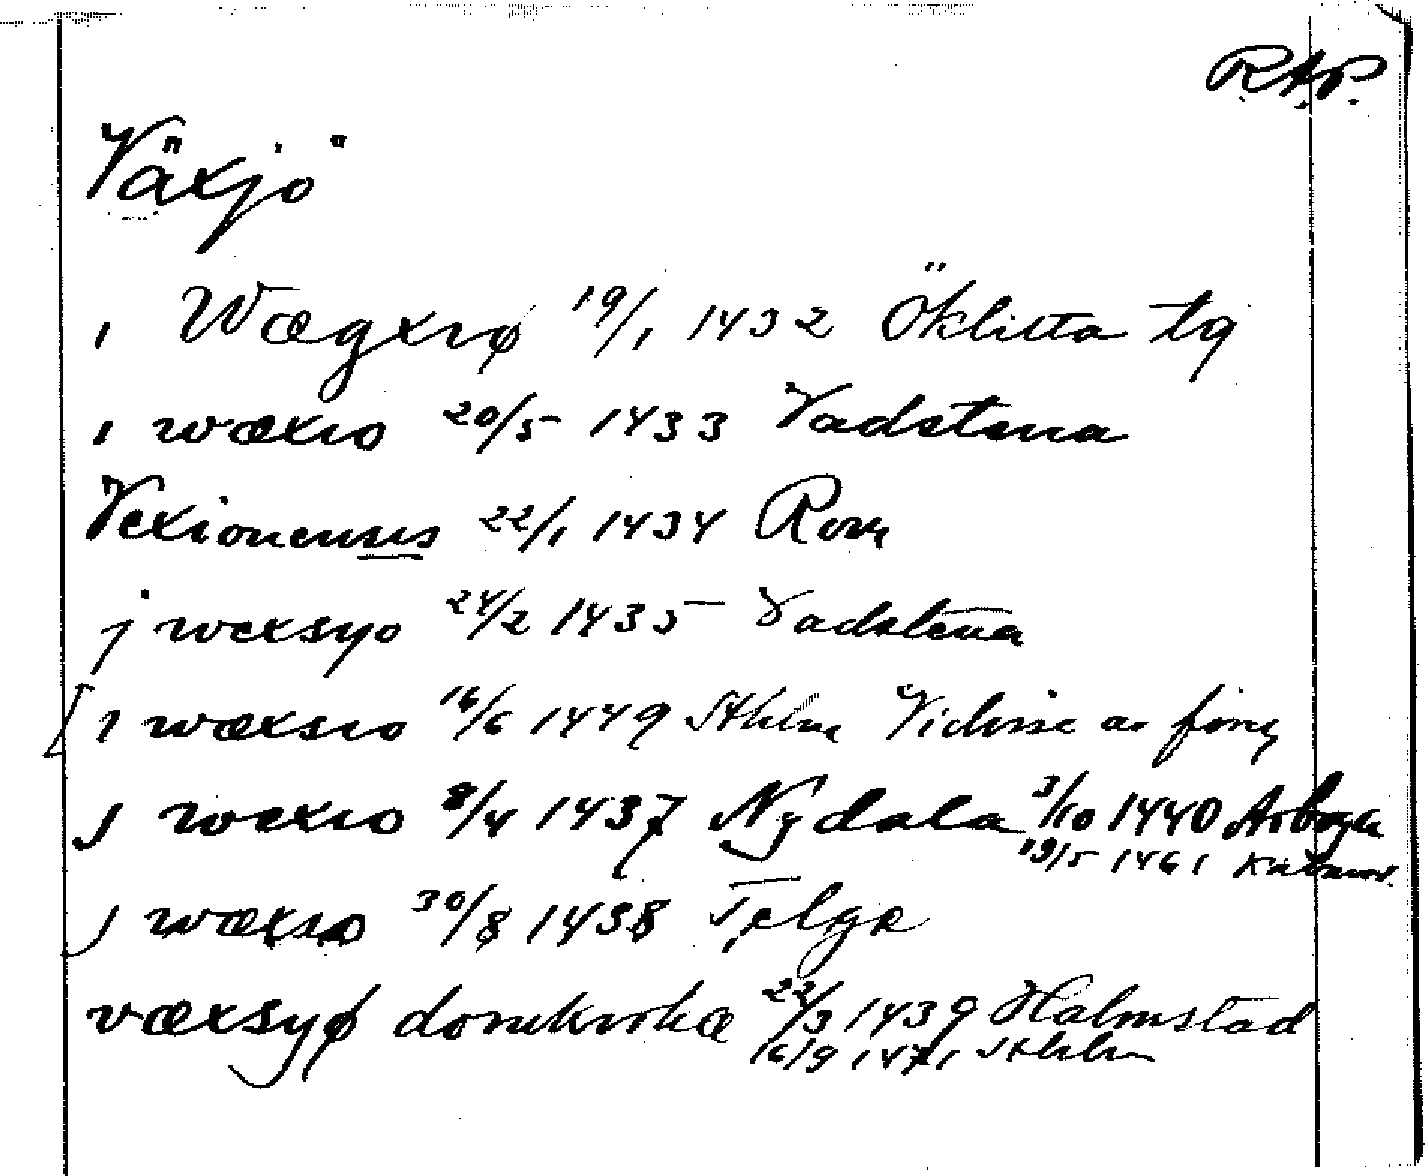 R.A.P.
Växjö
i Wægxiø 19/1 1432 Öklitta tg
i wæxio 20/5 1433 Vadstena
Vexionensis 22/1 1434 Rom
j wexsyo 24/2 1435 Vadstena
[i wæxsio 16/6 1449 Sthlm Vidisse av
j wexio 8/4 1437 Nydala 3/10 1440 Arboga
19/5 1461 Kalmar.
j wæxio 30/8 1438 Telge
væxsyø domkirkæ 22/3 1439 Halmstad
16/9 1471 Sthlm